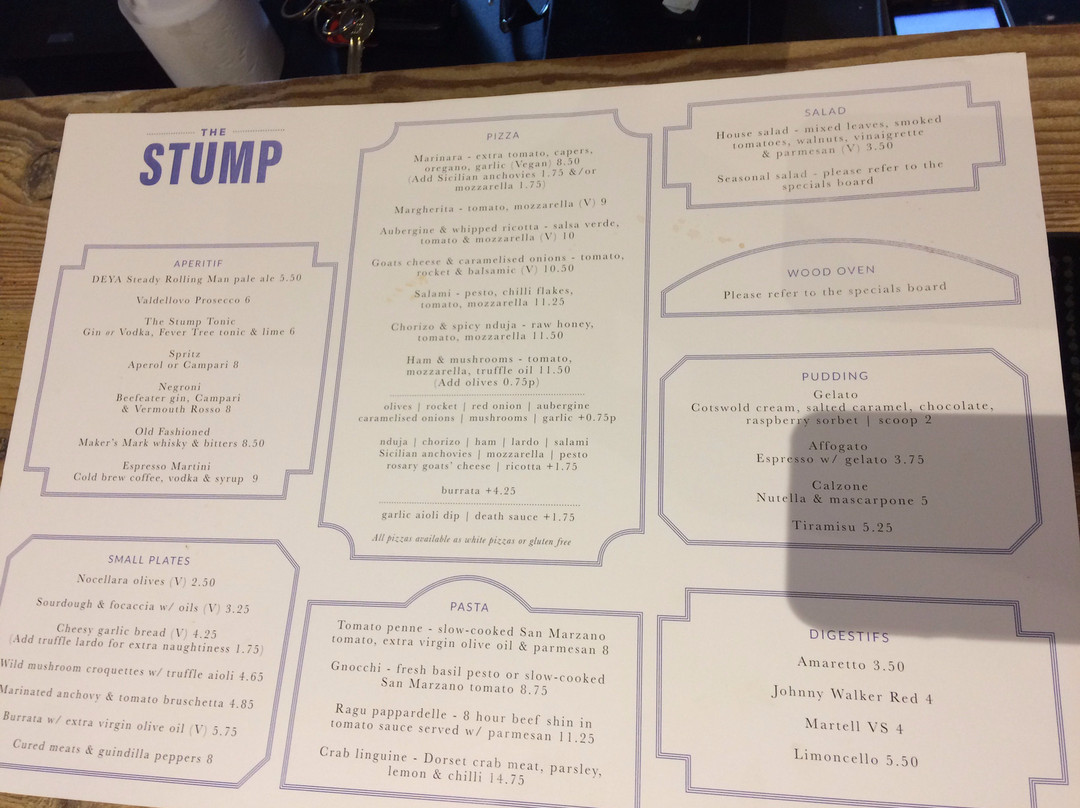 THE
STUMP
APERITIF
DEYA Steady Rolling Man pale ale 5.50
Valdellovo Prosecco 6
The Stump Tonic
Gin or Vodka, Fever Tree tonic & lime 6
Spritz
Aperol or Campari 8
Negroni
Beefeater gin, Campari
& Vermouth Rosso 8
Old Fashioned
Maker's Mark whisky & bitters 8.50
Espresso Martini
Cold brew coffee, vodka & syrup 9
SMALL PLATES
Nocellara olives (V) 2.50
Sourdough & focaccia w/ oils (V) 3.25
Cheesy garlic bread (V) 4.25
(Add truffle lardo for extra naughtiness 1.75)
Wild mushroom croquettes w/ truffle aioli 4.65
Marinated anchovy & tomato bruschetta 4.85
Burrata w/ extra virgin olive oil (V) 5.75
Cured meats & guindilla peppers 8
PIZZA
Marinara - extra tomato, capers,
oregano, garlic (Vegan) 8.50
(Add Sicilian anchovies 1.75 &/or
mozzarella 1.75)
Margherita - tomato, mozzarella (V) 9
Aubergine & whipped ricotta - salsa verde,
tomato & mozzarella (V) 10
Goats cheese & caramelised onions - tomato,
rocket & balsamic (V) 10.50
Salami - pesto, chilli flakes,
tomato, mozzarella 11.25
Chorizo & spicy nduja - raw honey,
tomato, mozzarella 11.50
Ham & mushrooms - tomato,
mozzarella, truffle oil 11.50
(Add olives 0.75p)
olives | rocket | red onion | aubergine
caramelised onions | mushrooms | garlic +0.75p
nduja | chorizo | ham | lardo | salami
Sicilian anchovies | mozzarella | pesto
rosary goats' cheese | ricotta +1.75
burrata +4.25
garlic aioli dip | death sauce +1.75
All pizzas available as white pizzas or gluten free
PASTA
Tomato penne - slow-cooked San Marzano
tomato, extra virgin olive oil & parmesan 8
Gnocchi - fresh basil pesto or slow-cooked
San Marzano tomato 8.75
Ragu pappardelle - 8 hour beef shin in
tomato sauce served w/ parmesan 11.25
Crab linguine - Dorset crab meat, parsley,
lemon & chilli 14.75
SALAD
House salad - mixed leaves, smoked
tomatoes, walnuts, vinaigrette
& parmesan (V) 3.50
Seasonal salad - please refer to the
specials board
WOOD OVEN
Please refer to the specials board
PUDDING
Gelato
Cotswold cream, salted caramel, chocolate,
raspberry sorbet | scoop 2
Affogato
Espresso w/ gelato 3.75
Calzone
Nutella & mascarpone 5
Tiramisu 5.25
DIGESTIFS
Amaretto 3.50
Johnny Walker Red 4
Martell VS 4
Limoncello 5.50